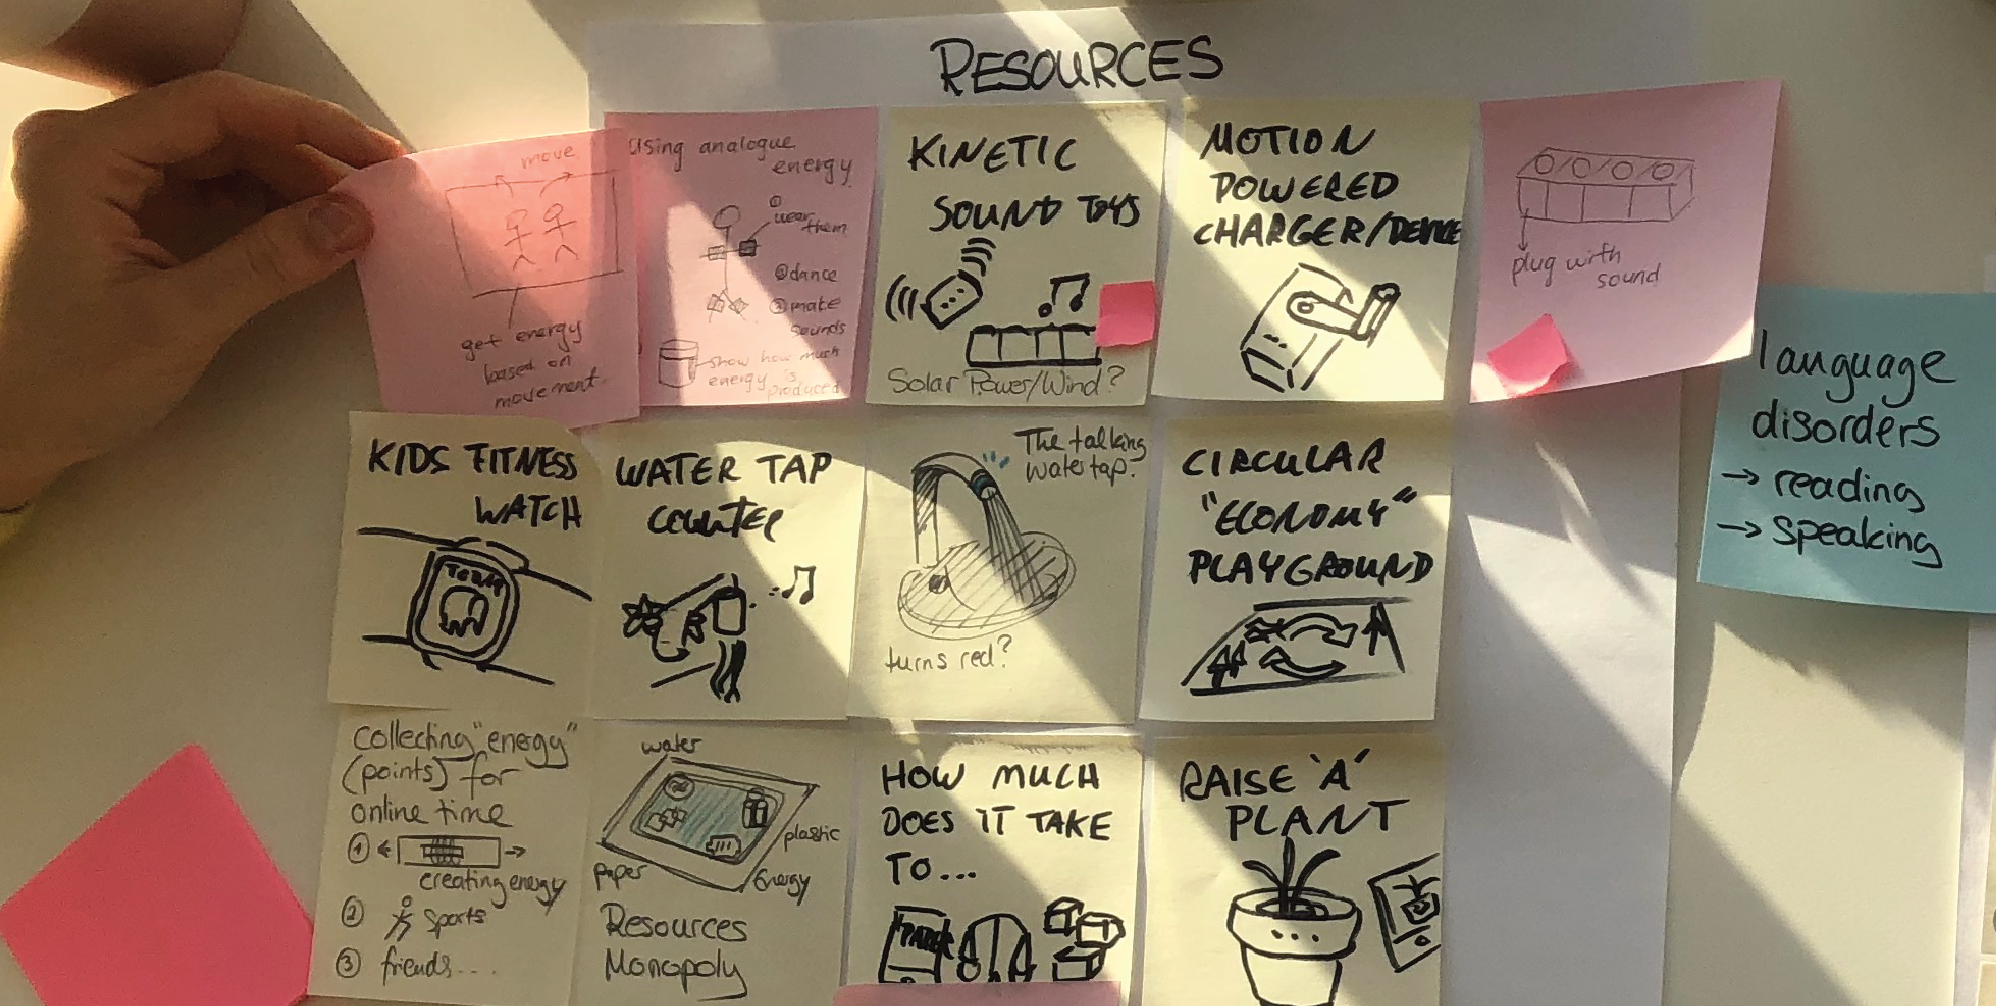 RESOURCES
move
get energy
based on
movement.
Using analogue
energy
① wear
them
② dance
③ make
sounds
show how much
energy is
produced
KINETIC
SOUND TOYS
Solar Power/Wind?
MOTION
POWERED
CHARGER/DEVICE
plug with
sound
language
disorders
→ reading
→ speaking
KIDS FITNESS
WATCH
WATER TAP
COUNTER
The talking
watertap?
turns red?
CIRCULAR
"ECONOMY"
PLAYGROUND
collecting "energy"
(points) for
online time
①
creating energy
② sports
③ friends....
water
plastic
paper
Energy
Resources
Monopoly
HOW MUCH
DOES IT TAKE
TO...
RAISE 'A'
PLANT